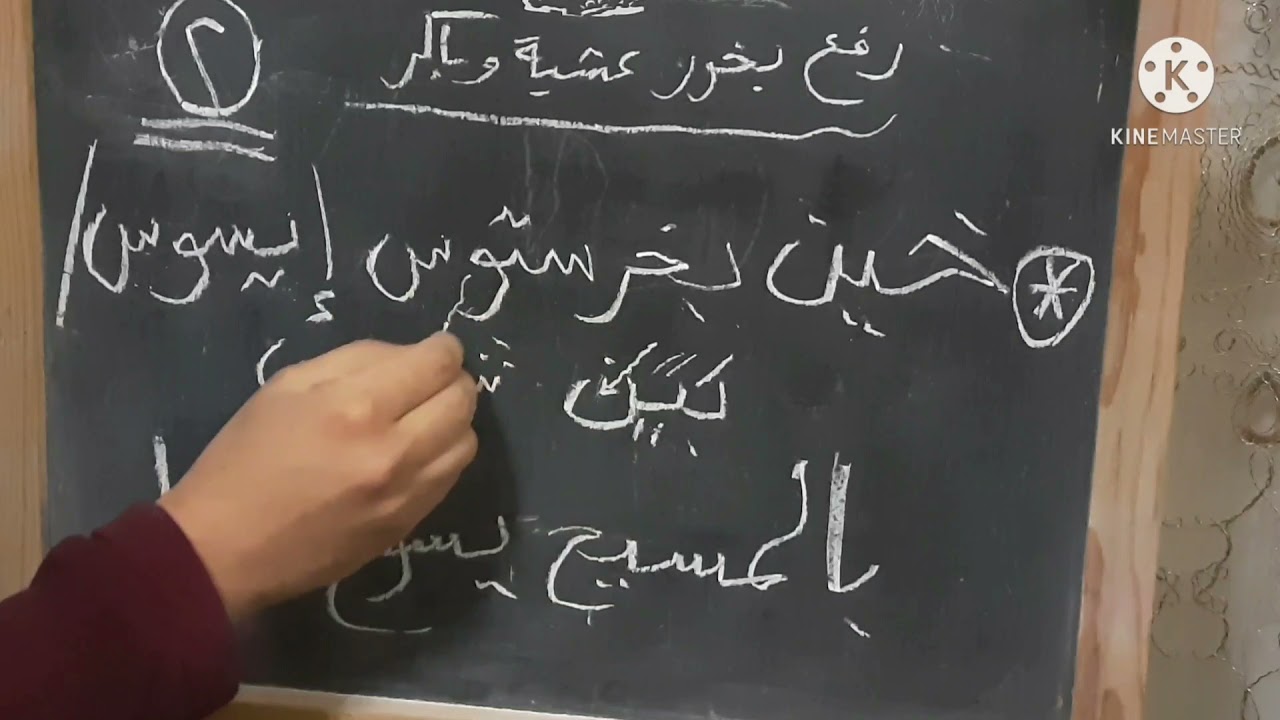 رفع بخور عشية وباكر
٢
* خين بخرستوس إيسوس /
بالمسيح يسوع
K
KINEMASTER